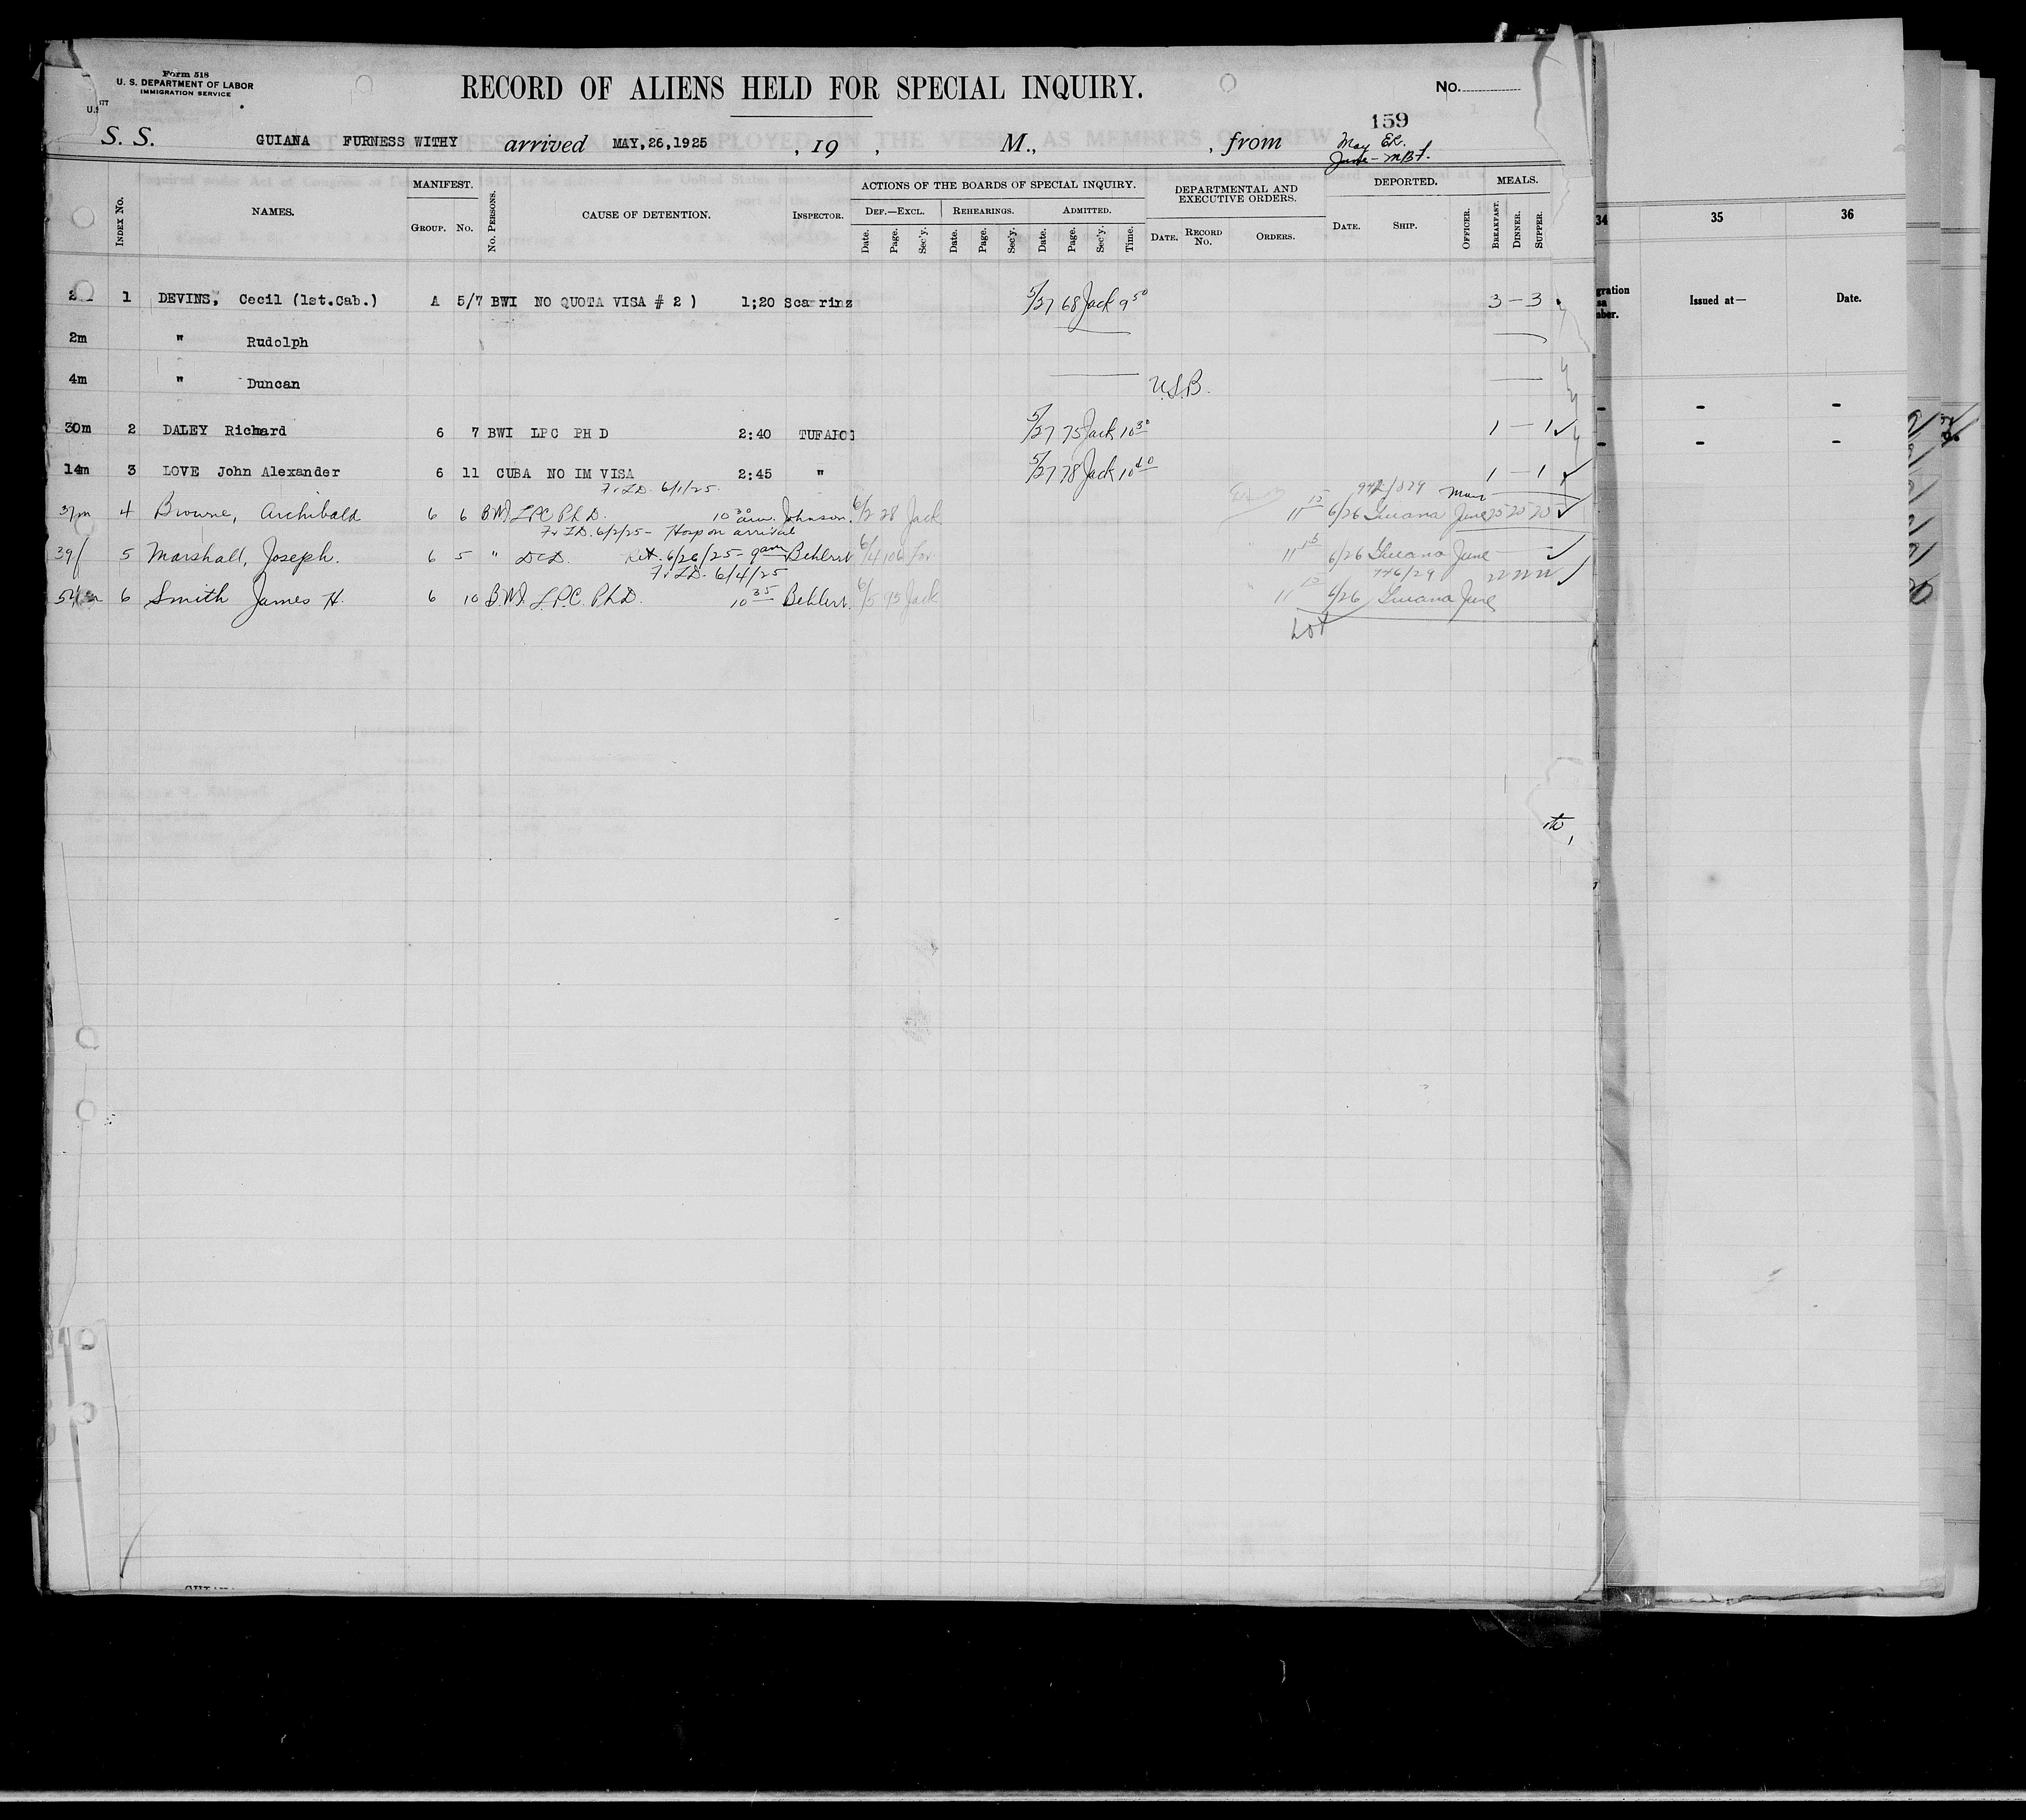 Form 518
U. S. DEPARTMENT OF LABOR
IMMIGRATION SERVICE
RECORD OF ALIENS HELD FOR SPECIAL INQUIRY.
No.
159
S. S. GUIANA FURNESS WITHY arrived MAY,26,1925 , 19 , M., , from
May ER.
June - MBF.
INDEX No.
NAMES.
MANIFEST.
GROUP. No.
No. PERSONS.
CAUSE OF DETENTION.
INSPECTOR.
ACTIONS OF THE BOARDS OF SPECIAL INQUIRY.
DEF.—EXCL. REHEARINGS. ADMITTED.
Date. Page. Sec'y. Date. Page. Sec'y. Date. Page. Sec'y. Time.
DEPARTMENTAL AND EXECUTIVE ORDERS.
DATE. RECORD No. ORDERS.
DEPORTED.
DATE. SHIP. OFFICER.
MEALS.
BREAKFAST. DINNER. SUPPER.
1 DEVINS, Cecil (1st.Cab.) A 5/7 BWI NO QUOTA VISA # 2 ) 1;20 Scarinz 5/27 68 Jack 9 50 3 - 3
2m " Rudolph
4m " Duncan U.S.B.
30m 2 DALEY Richard 6 7 BWI LPC PH D 2:40 TUFARO 5/27 75 Jack 10 30 1 - 1 ✓
14m 3 LOVE John Alexander 6 11 CUBA NO IM VISA 2:45 " 5/27 78 Jack 10 40 1 - 1 ✓
6/1/25
37m 4 Browne, Archibald 6 6 BWI LPC Ph.D. 10 30 am. Johnson. 6/2 28 Jack 11 15 6/26 Guiana June 25 25 25 ✓
6/2/25 - Hosp on arrival
39 5 Marshall, Joseph. 6 5 " 6/26/25 - 9am Behlert 6/4 106 11 15 6/26 Guiana June ✓
6/4/25
6 Smith James H. 6 10 BWI L.P.C. Ph.D. 10 35 Behlert. 6/5 95 Jack 11 15 6/26 Guiana June 22 22 22 ✓
34 35 36
Issued at— Date.
- - -
- - -